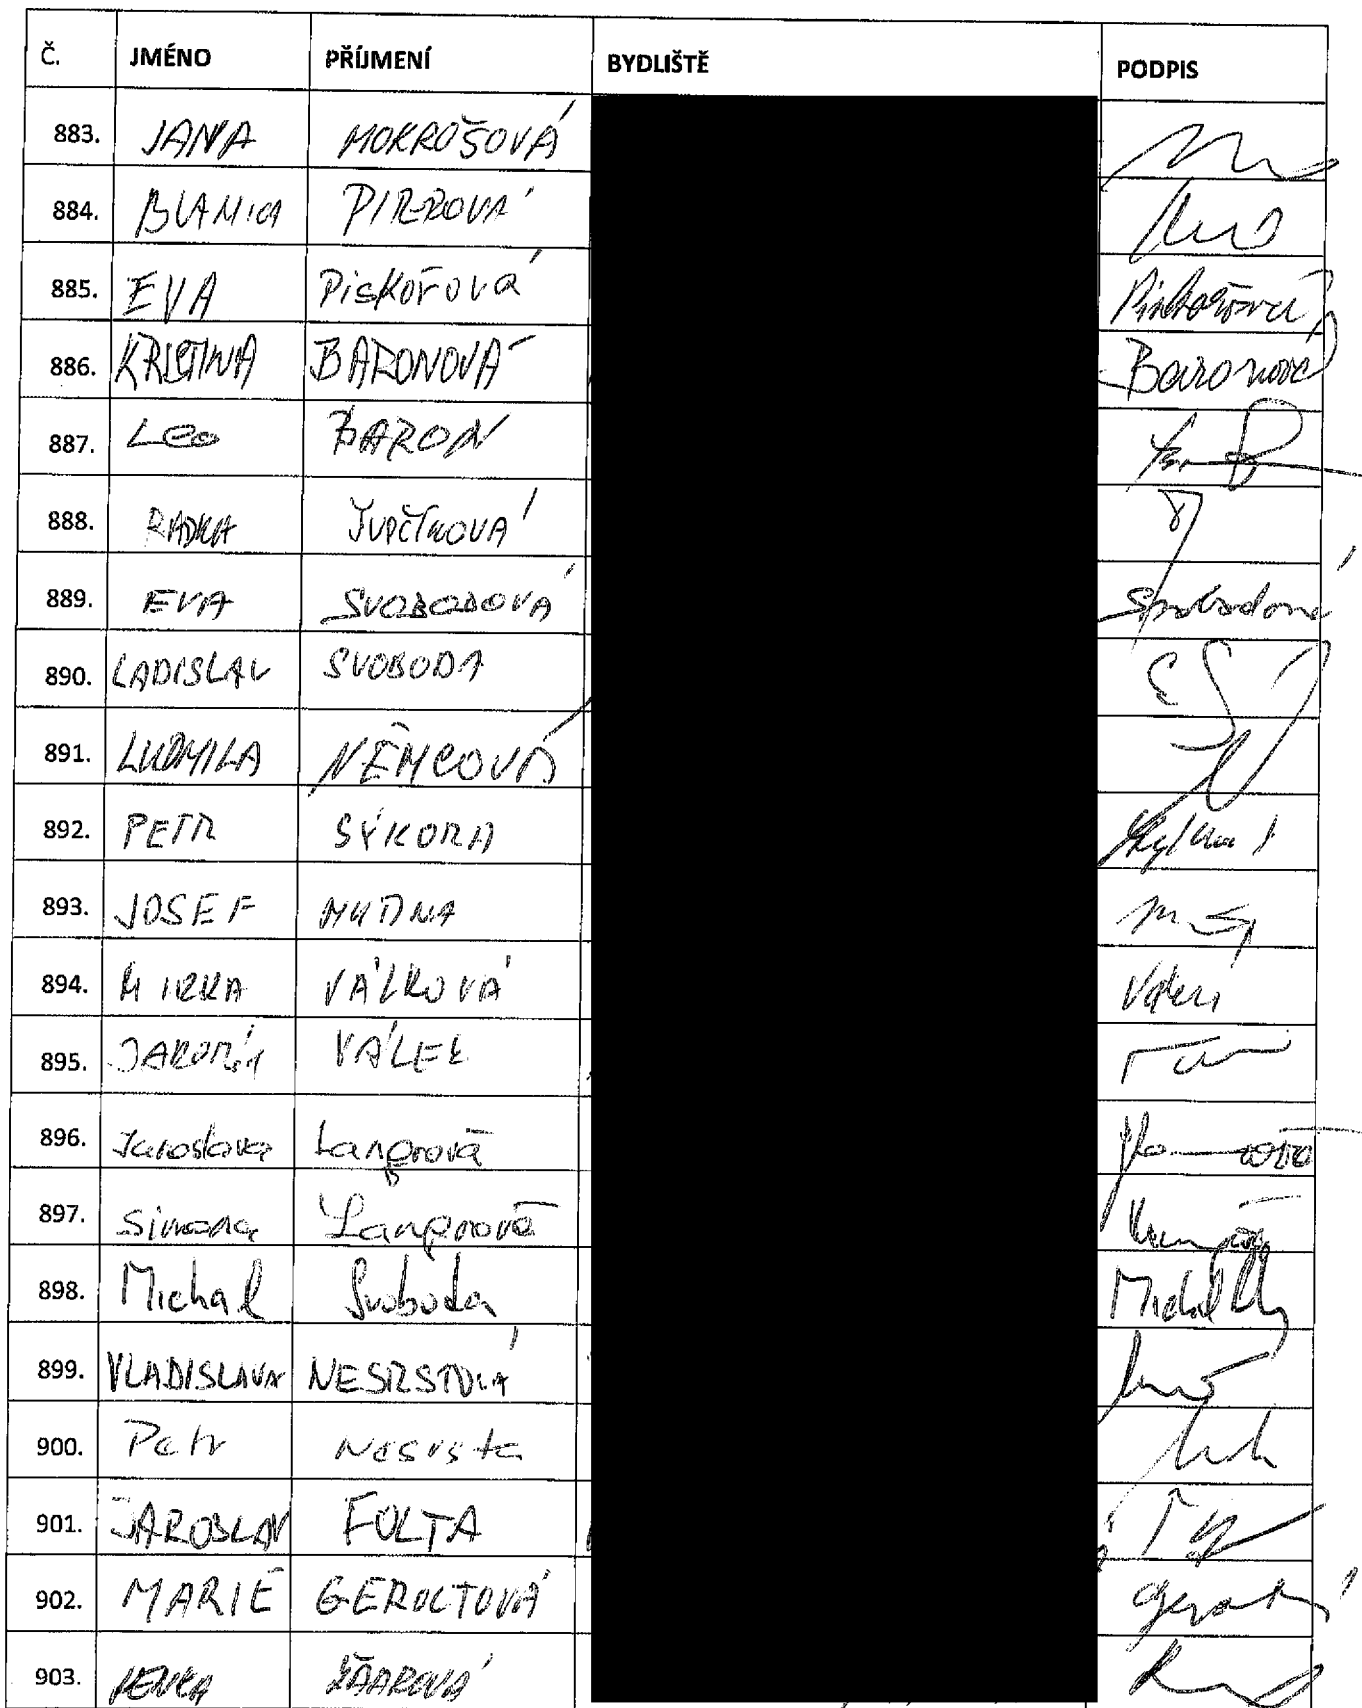 Č. JMÉNO PŘÍJMENÍ BYDLIŠTĚ PODPIS
883. JANA MOKROŠOVÁ
884. PIRROVÁ
885. EVA Piskořová Piskořová
886. KRISTINA BARONOVÁ Baronová
887. Leo BARON
888. RADKA
889. EVA SVOBODOVÁ Svobodová
890. LADISLAV SVOBODA
891. LUDMILA NĚMCOVÁ
892. PETR SÝKORA
893. JOSEF
894. MIRKA VÁLKOVÁ
895. JAROMÍR VÁLEK
896. Jaroslava Langrová
897. Simona Langrová
898. Michal Svoboda Michal
899. VLADISLAVA NESRSTOVÁ
900. Petr Nesrsta
901. JAROSLAV FOLTA
902. MARIE GEROLTOVÁ
903. LENKA